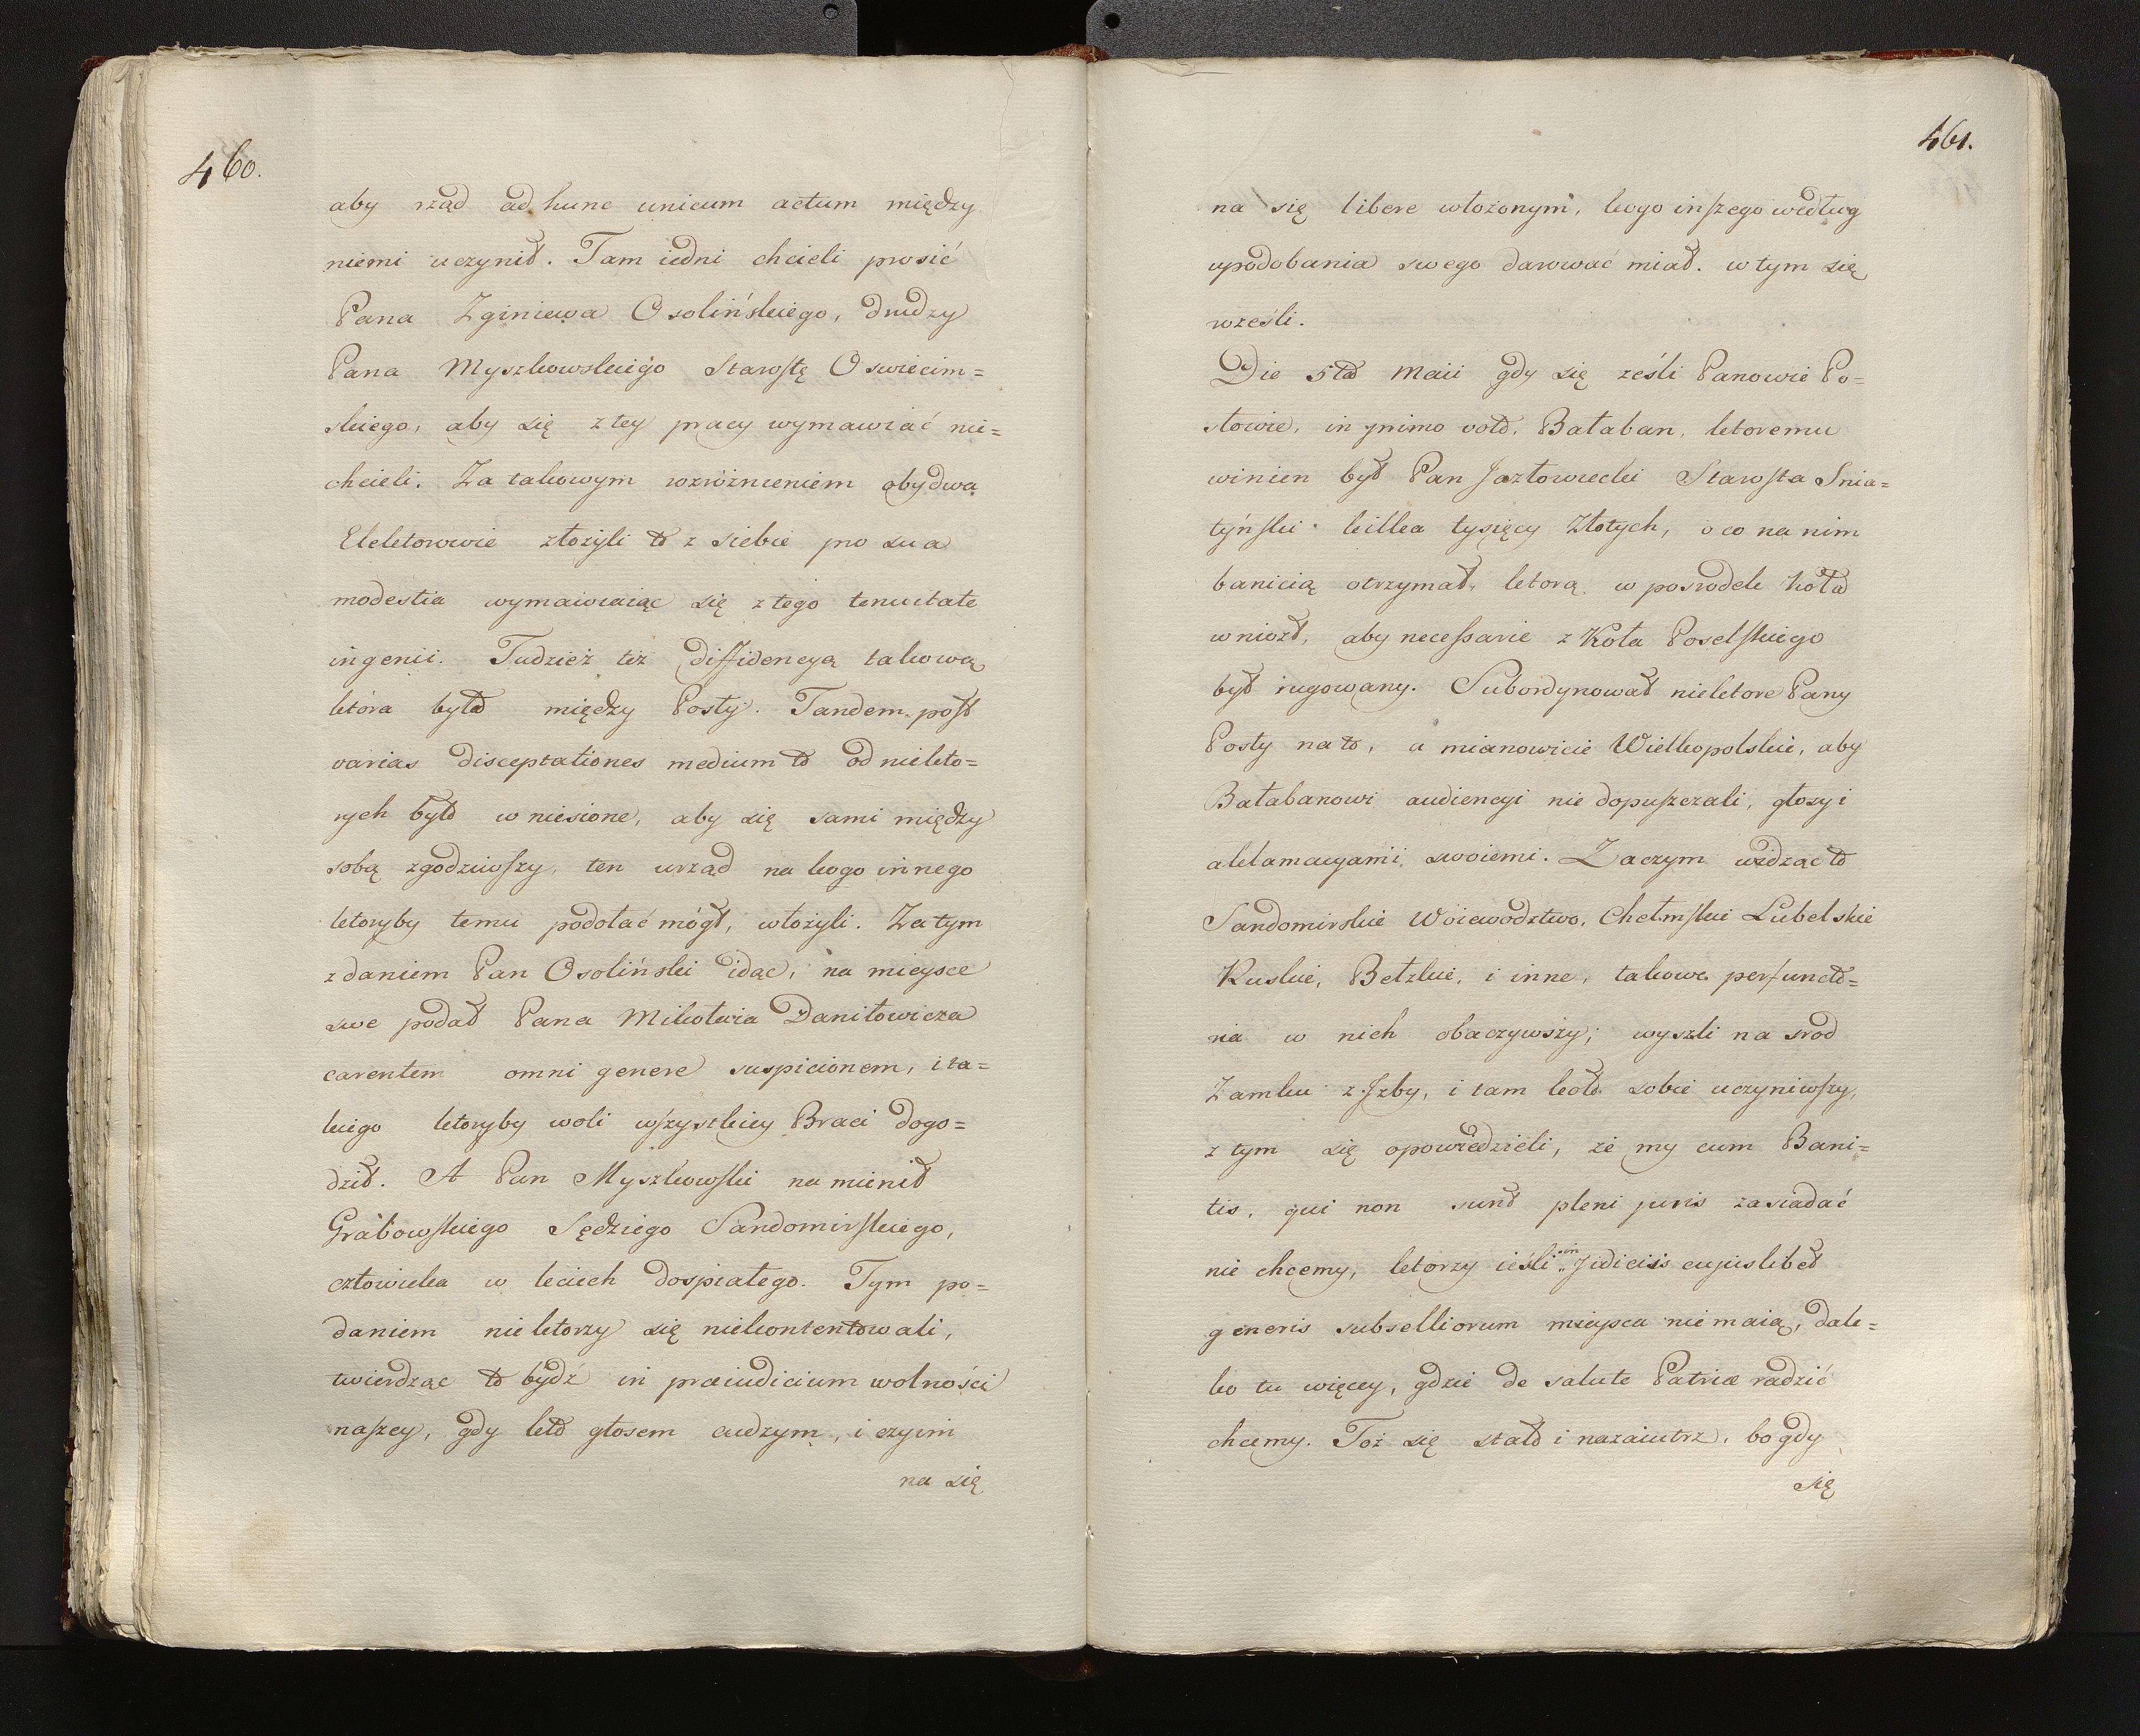 460.
aby rząd ad hunc unicum actum między
niemi uczynił. Tam iedni chcieli prosić
Pana Zginiewa Osolińskiego, drudzy
Pana Myszkowskiego Starostę Oswiecim=
skiego, aby się z tey pracy wymawiać nie=
chcieli. Za takowym rozróżnieniem obydwa
Elektorowie złożyli to z siebie pro sua
modestia wymawiaiąc się z tego tenuitate
ingenii. Tudzież też diffidencyą takową
która była między Posły. Tandem post
varias disceptationes medium to od niekto=
rych było wniesione, aby się sami między
sobą zgodziwszy, ten urząd na kogo innego
ktoryby temu podołać mógł, włożyli. Za tym
zdaniem Pan Osoliński idąc, na mieysce
swe podał Pana Mikołaia Daniłowicza
carentem omni genere suspicionem, i ta=
kiego ktoryby woli wszystkiey Braci dogo=
dził. A Pan Myszkowski na mienił
Grabowskiego Sędziego Sandomirskiego,
człowieka w leciech dospiałego. Tym po=
daniem niektorzy się niekontentowali,
twierdząc to bydź in præiudicium wolności
naszey, gdy kto głosem cudzym, i czyim
na się
461.
na się libere włożonym, kogo inszego według
upodobania swego darować miał. w tym się
rześli.
Die 5ta Maii gdy się ześli Panowie Po=
słowie, in primo voto, Bałaban, ktoremu
winien był Pan Jazłowiecki Starosta Snia=
tyński kilka tysięcy Złotych, o co na nim
banicią otrzymał, ktorą w posrodek koła
wniozł, aby necessarie z Koła Poselskiego
był rugowany. Subordynował niektore Pany
Posły na to, a mianowicie Wielkopolskie, aby
Bałabanowi audiencyi nie dopuszczali, głosy i
akklamacyami swoiemi. Zaczym widząc to
Sandomirskie Woiewodztwo, Chełmskie Lubelskie
Ruskie, Bełzkie, i inne, takowe perfuncto=
ria w nich obaczywszy; wyszli na srod
Zamku z Jzby, i tam koło sobie uczyniwszy,
z tym się opowiedzieli, że my cum Bani=
tis, qui non sunt pleni juris zasiadać
nie chcemy, ktorzy ieśli in Jidiciis cujuslibet
generis subselliorum mieysca nie maią, dale=
ko tu więcey, gdzie de salute Patriæ radzić
chcemy. Toż się stało i nazaiutrz, bo gdy
się